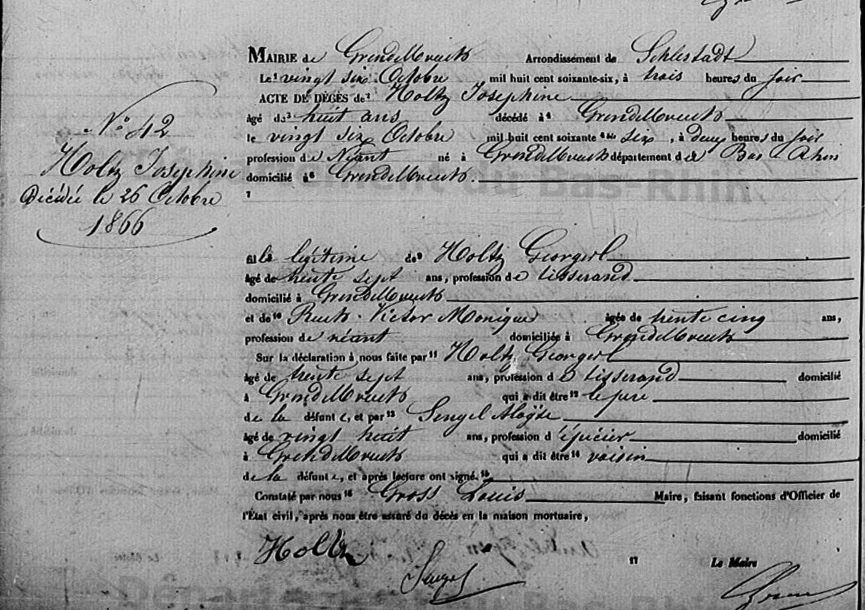 MAIRIE de Grendelbruch Arrondissement de Schlestadt
Le vingt six Octobre mil huit cent soixante-six, à trois heures du soir
ACTE DE DÉCÈS de Holtz Josephine
âgé de huit ans décédé à Grendelbruch
le vingt six Octobre mil huit cent soixante six, à deux heures du soir
profession de Néant né à Grendelbruch département du Bas-Rhin
domicilié à Grendelbruch
N° 42
Holtz Josephine
Décédée le 26 Octobre
1866
fille légitime de Holtz
âgé de trente sept ans, profession de tisserand
domicilié à Grendelbruch
et de Monique âgée de trente cinq ans,
profession de néant domiciliée à Grendelbruch
Sur la déclaration à nous faite par Holtz
âgé de trente sept ans, profession de tisserand domicilié
à Grendelbruch qui a dit être le père
de la défunte, et par Sengel Aloÿse
âgé de vingt huit ans, profession d'épicier domicilié
à Grendelbruch qui a dit être voisin
de la défunte, et après lecture ont signé.
Constaté par nous Gross Louis Maire, faisant fonctions d'Officier de
l'État civil, après nous être assuré du décès en la maison mortuaire,
Holtz
Sengel
Le Maire
du Bas-Rhin